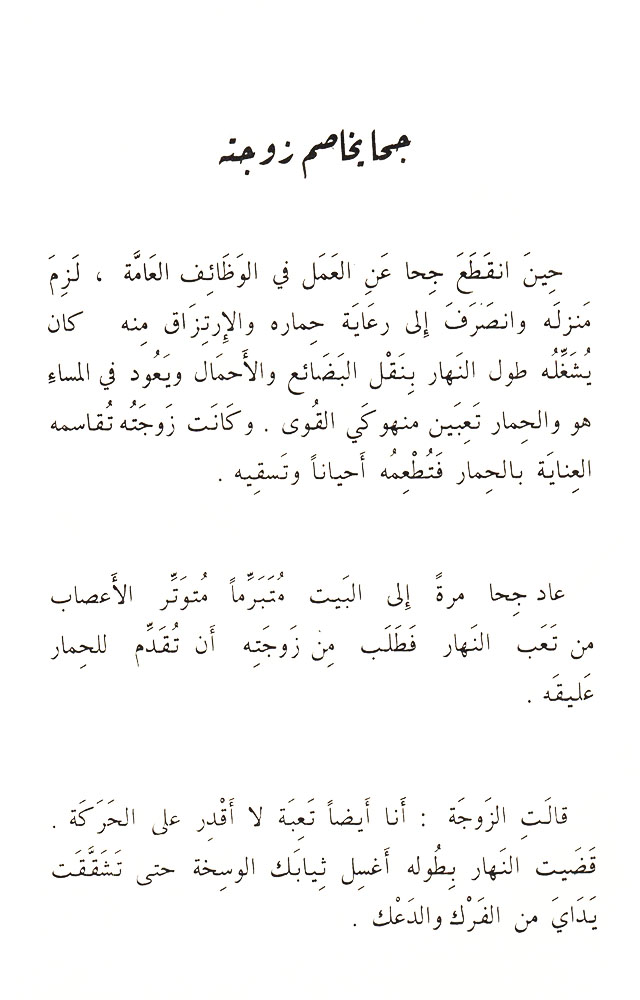 جحا يخاصم زوجته
حِينَ انقَطَعَ جِحا عَنِ العَمَل في الوَظَائِف العَامَّة ، لَزِمَ
مَنزلَه وانصَرَفَ إلى رعَايَة حِماره والإرتِزَاق مِنه كان
يُشَغِّلُه طول النَهار بِنَقْل البَضَائع والأَحمَال ويَعُود في المساءِ
هو والحِمار تَعِبَين منهوكَي القُوى . وكَانَت زَوجَتُه تُقاسمه
العِنايَة بالحِمار فَتُطْعِمُه أَحياناً وتَسقِيه .
عاد جِحا مرةً إلى البَيت مُتَبَرِّماً مُتوَتِّر الأَعصاب
من تَعَب النَهار فَطَلَب مِنْ زَوجَتِه أَن تُقَدِّم للحِمار
عَليقَه .
قالَتِ الزَوجَة : أَنا أَيضاً تَعِبَة لا أَقْدِر على الحَرَكَة .
قَضَيت النَهار بِطُوله أَغسِل ثِيابَك الوسِخة حتى تَشَقَّقَت
يَدَايَ من الفَرْك والدَعْك .